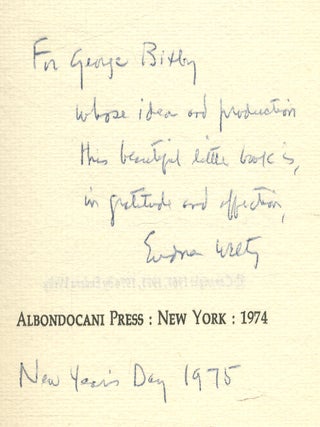 For George Bixby
whose idea and production
this beautiful little book is,
in gratitude and affection,
Eudora Welty
ALBONDOCANI PRESS : NEW YORK : 1974
New Year's Day 1975